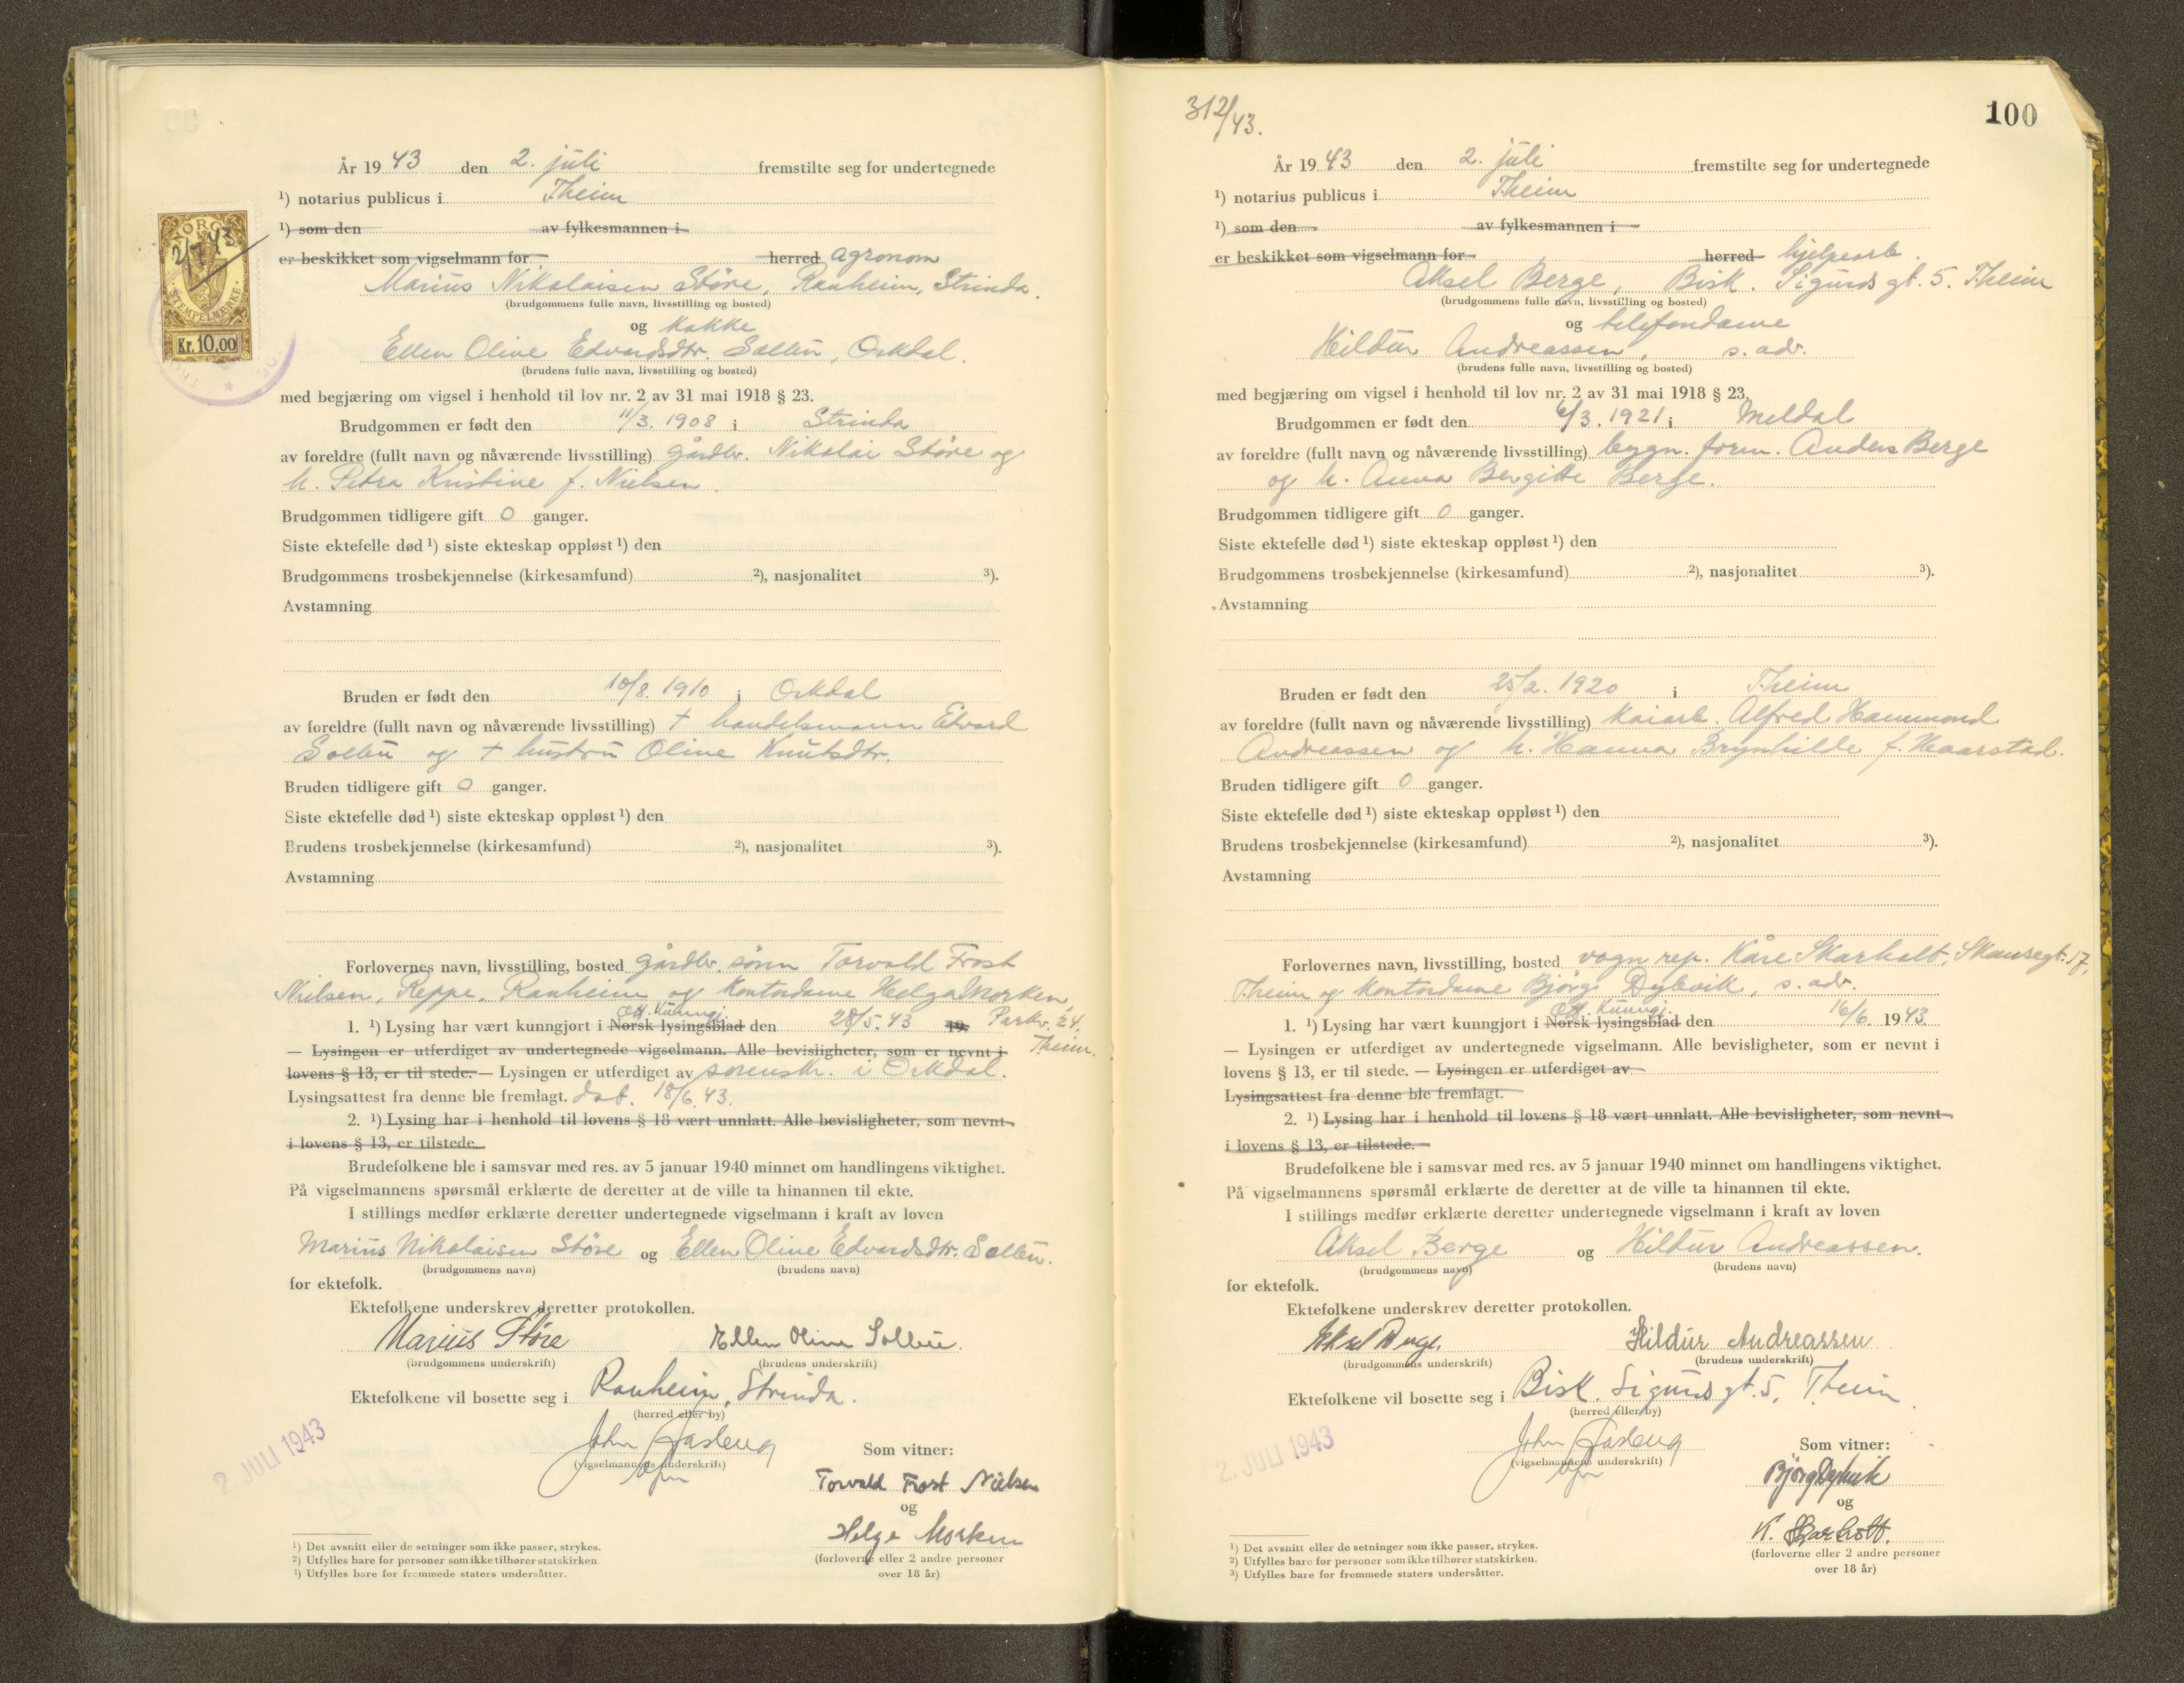 År 1943 den 2. juli fremstilte seg for undertegnede
¹) notarius publicus i Theim
¹) som den av fylkesmannen i
er beskikket som vigselmann for herred agronom
Marius Nikolaisen Støre, Ranheim, Strinda.
(brudgommens fulle navn, livsstilling og bosted)
og kokke
Ellen Olive Edvardsdtr. Solleu, Orkdal.
(brudens fulle navn, livsstilling og bosted)
NORGE
2/7 43
STEMPELMÆRKE
Kr. 10,00
med begjæring om vigsel i henhold til lov nr. 2 av 31 mai 1918 § 23.
Brudgommen er født den 11/3. 1908 i Strinda
av foreldre (fullt navn og nåværende livsstilling) gårdbr. Nikolai Støre og
h. Petra Kristine f. Nielsen.
Brudgommen tidligere gift 0 ganger.
Siste ektefelle død ¹) siste ekteskap oppløst ¹) den
Brudgommens trosbekjennelse (kirkesamfund) ²), nasjonalitet ³).
Avstamning
Bruden er født den 10/8. 1910 i Orkdal
av foreldre (fullt navn og nåværende livsstilling) + handelsmann Edvard
Solleu og + hustru Oline Knutsdtr.
Bruden tidligere gift 0 ganger.
Siste ektefelle død ¹) siste ekteskap oppløst ¹) den
Brudens trosbekjennelse (kirkesamfund) ²), nasjonalitet ³).
Avstamning
Forlovernes navn, livsstilling, bosted gårdbr. sønn Torvald Frost
Nielsen, Reppe, Ranheim og kontordame Helga Morken, Parkv. 24. Theim.
Off. Kunngj.
1. ¹) Lysing har vært kunngjort i Norsk lysingsblad den 28/5. 43 19
— Lysingen er utferdiget av undertegnede vigselmann. Alle bevisligheter, som er nevnt i
lovens § 13, er til stede. — Lysingen er utferdiget av sorenskr. i Orkdal.
Lysingsattest fra denne ble fremlagt. dat. 18/6. 43.
2. ¹) Lysing har i henhold til lovens § 18 vært unnlatt. Alle bevisligheter, som nevnt
i lovens § 13, er tilstede.
Brudefolkene ble i samsvar med res. av 5 januar 1940 minnet om handlingens viktighet.
På vigselmannens spørsmål erklærte de deretter at de ville ta hinannen til ekte.
I stillings medfør erklærte deretter undertegnede vigselmann i kraft av loven
Marius Nikolaisen Støre og Ellen Oline Edvardsdtr. Solleu.
(brudgommens navn) (brudens navn)
for ektefolk.
Ektefolkene underskrev deretter protokollen.
Marius Støre Ellen Oline Solleu.
(brudgommens underskrift) (brudens underskrift)
Ektefolkene vil bosette seg i Ranheim, Strinda.
(herred eller by)
2. JULI 1943
John Aasleng
(vigselmannens underskrift)
Som vitner:
Torvald Frost Nielsen
og
Helga Morken
(forloverne eller 2 andre personer
over 18 år)
¹) Det avsnitt eller de setninger som ikke passer, strykes.
²) Utfylles bare for personer som ikke tilhører statskirken.
³) Utfylles bare for fremmede staters undersåtter.
312/43.
100
År 1943 den 2. juli fremstilte seg for undertegnede
¹) notarius publicus i Theim
¹) som den av fylkesmannen i
er beskikket som vigselmann for herred hjelpearb.
Aksel Berge, Bisk. Sigurds gt. 5. Theim
(brudgommens fulle navn, livsstilling og bosted)
og telefondame
Hildur Andreassen, s. adr.
(brudens fulle navn, livsstilling og bosted)
med begjæring om vigsel i henhold til lov nr. 2 av 31 mai 1918 § 23.
Brudgommen er født den 6/3. 1921 i Meldal
av foreldre (fullt navn og nåværende livsstilling) bygn. form. Anders Berge
og h. Anna Bergitte Berge.
Brudgommen tidligere gift 0 ganger.
Siste ektefelle død ¹) siste ekteskap oppløst ¹) den
Brudgommens trosbekjennelse (kirkesamfund) ²), nasjonalitet ³).
Avstamning
Bruden er født den 25/2. 1920 i Theim
av foreldre (fullt navn og nåværende livsstilling) kaiarb. Alfred Hammond
Andreassen og h. Hanna Brynhilde f. Haarstad.
Bruden tidligere gift 0 ganger.
Siste ektefelle død ¹) siste ekteskap oppløst ¹) den
Brudens trosbekjennelse (kirkesamfund) ²), nasjonalitet ³).
Avstamning
Forlovernes navn, livsstilling, bosted vogn rep. Kåre Skarholt, Skansegt. 17,
Theim og kontordame Bjørg Dybvik, s. adr.
Off. Kunngj.
1. ¹) Lysing har vært kunngjort i Norsk lysingsblad den 16/6. 1943.
— Lysingen er utferdiget av undertegnede vigselmann. Alle bevisligheter, som er nevnt i
lovens § 13, er til stede. — Lysingen er utferdiget av
Lysingsattest fra denne ble fremlagt.
2. ¹) Lysing har i henhold til lovens § 18 vært unnlatt. Alle bevisligheter, som nevnt
i lovens § 13, er tilstede.
Brudefolkene ble i samsvar med res. av 5 januar 1940 minnet om handlingens viktighet.
På vigselmannens spørsmål erklærte de deretter at de ville ta hinannen til ekte.
I stillings medfør erklærte deretter undertegnede vigselmann i kraft av loven
Aksel Berge og Hildur Andreassen.
(brudgommens navn) (brudens navn)
for ektefolk.
Ektefolkene underskrev deretter protokollen.
Aksel Berge. Hildur Andreassen
(brudgommens underskrift) (brudens underskrift)
Ektefolkene vil bosette seg i Bisk. Sigurds gt. 5, Theim
(herred eller by)
2. JULI 1943
John Aasleng
(vigselmannens underskrift)
Som vitner:
Bjørg Dybvik
og
K. Skarholt.
(forloverne eller 2 andre personer
over 18 år)
¹) Det avsnitt eller de setninger som ikke passer, strykes.
²) Utfylles bare for personer som ikke tilhører statskirken.
³) Utfylles bare for fremmede staters undersåtter.